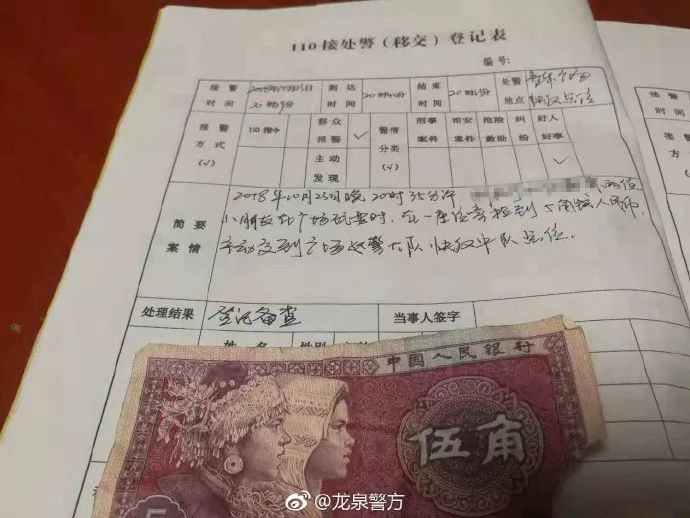 110接处警（移交）登记表
编号：
接警时间 2018年10月23日20时35分 到达时间 结束时间 处警地点
接警方式（√） 110指令 群众报警 √ 主动发现 警情分类（√） 刑事案件 治安案件 抢险救助 纠纷 好人好事 √
简要案情
2018年10月23日晚20时35分许，
小朋友在广场玩耍时，在一座位旁捡到5角钱人民币，
主动交到广场巡警大队快反中队岗位。
处理结果 登记备查 当事人签字
姓名 性别
中国人民银行
伍角
5
接警时间
接警方式（√）
@龙泉警方